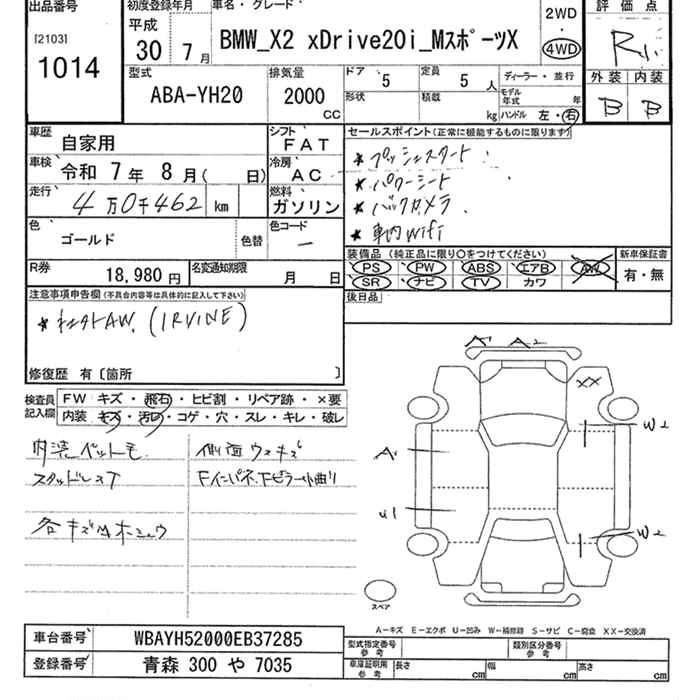 出品番号
[2103]
1014
初度登録年月
平成
30年 7月
車名・グレード
BMW_X2 xDrive20i_MスポーツX
2WD
・
4WD
評価点
R
外装 内装
B B
型式
ABA-YH20
排気量
2000
CC
ドア
5
定員
5人
形状
積載
kg
ディーラー・並行
モデル年式 年
ハンドル 左・右
車歴
自家用
シフト
FAT
車検
令和 7年 8月( 日)
冷房
AC
走行
4万0千462 km
燃料
ガソリン
色
ゴールド
色替
色コード
ー
R券
18,980円
名変通知期限
月 日
セールスポイント(正常に機能するものに限ります)
★プッシュスタート
★パワーシート
★バックカメラ
★車内Wifi
装備品(純正品に限り○をつけてください)
PS PW ABS エアB AW
SR ナビ TV カワ
新車保証書
有・無
後日品
注意事項申告欄(不具合内容等は具体的に記入して下さい)
AW. (IRVINE)
修復歴 有〔箇所 〕
検査員
記入欄
FW キズ・飛石・ヒビ割・リペア跡・×要
内装・キズ・汚れ・コゲ・穴・スレ・キレ・破レ
内装ペット毛
スタッドレスT
側面ウスキズ
A A2
XX
W2
A
U1
W2
スペア
A-キズ E-エクボ U-凹み W-補修跡 S-サビ C-腐食 XX-交換済
車台番号
WBAYH52000EB37285
登録番号
青森 300 や 7035
型式指定番号
参考
類別区分番号
参考
車庫証明用
参考
長さ cm 幅 cm 高さ cm